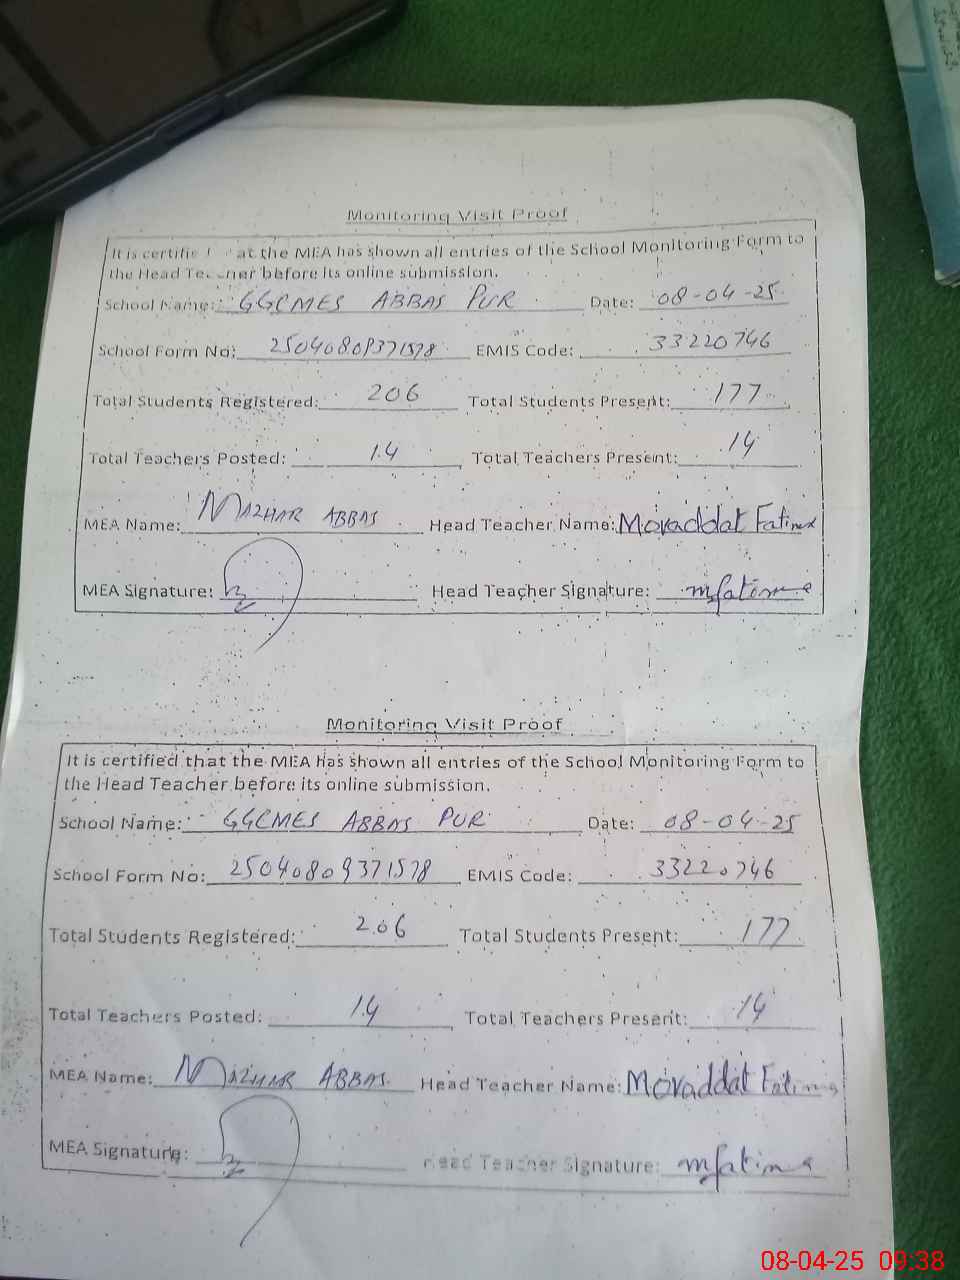 Monitoring Visit Proof
It is certifie at the MEA has shown all entries of the School Monitoring Form to
the Head Te ner before its online submission.
School Name: GGCMES ABBAS PUR Date: 08-04-25
School Form No: 25040809371578 EMIS Code: 33220746
Total Students Registered: 206 Total Students Present: 177
Total Teachers Posted: 14 Total Teachers Present: 14
MEA Name: MAZHAR ABBAS Head Teacher Name: Movaddat Fatima
MEA Signature: Head Teacher Signature: mfatima
Monitoring Visit Proof
It is certified that the MEA has shown all entries of the School Monitoring Form to
the Head Teacher before its online submission.
School Name: GGCMES ABBAS PUR Date: 08-04-25
School Form No: 25040809371578 EMIS Code: 33220746
Total Students Registered: 206 Total Students Present: 177
Total Teachers Posted: 14 Total Teachers Present: 14
MEA Name: MAZHAR ABBAS Head Teacher Name: Movaddat Fatima
MEA Signature: Head Teacher Signature: mfatima
08-04-25 09:38